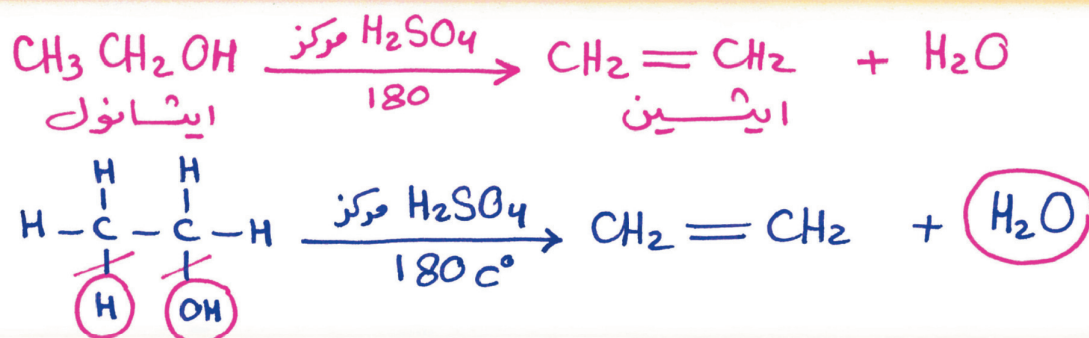 CH3 CH2 OH مركز H2SO4 180 CH2 = CH2 + H2O
ايثانول ايثين
H H
H – C – C – H مركز H2SO4 180 c° CH2 = CH2 + H2O
H OH